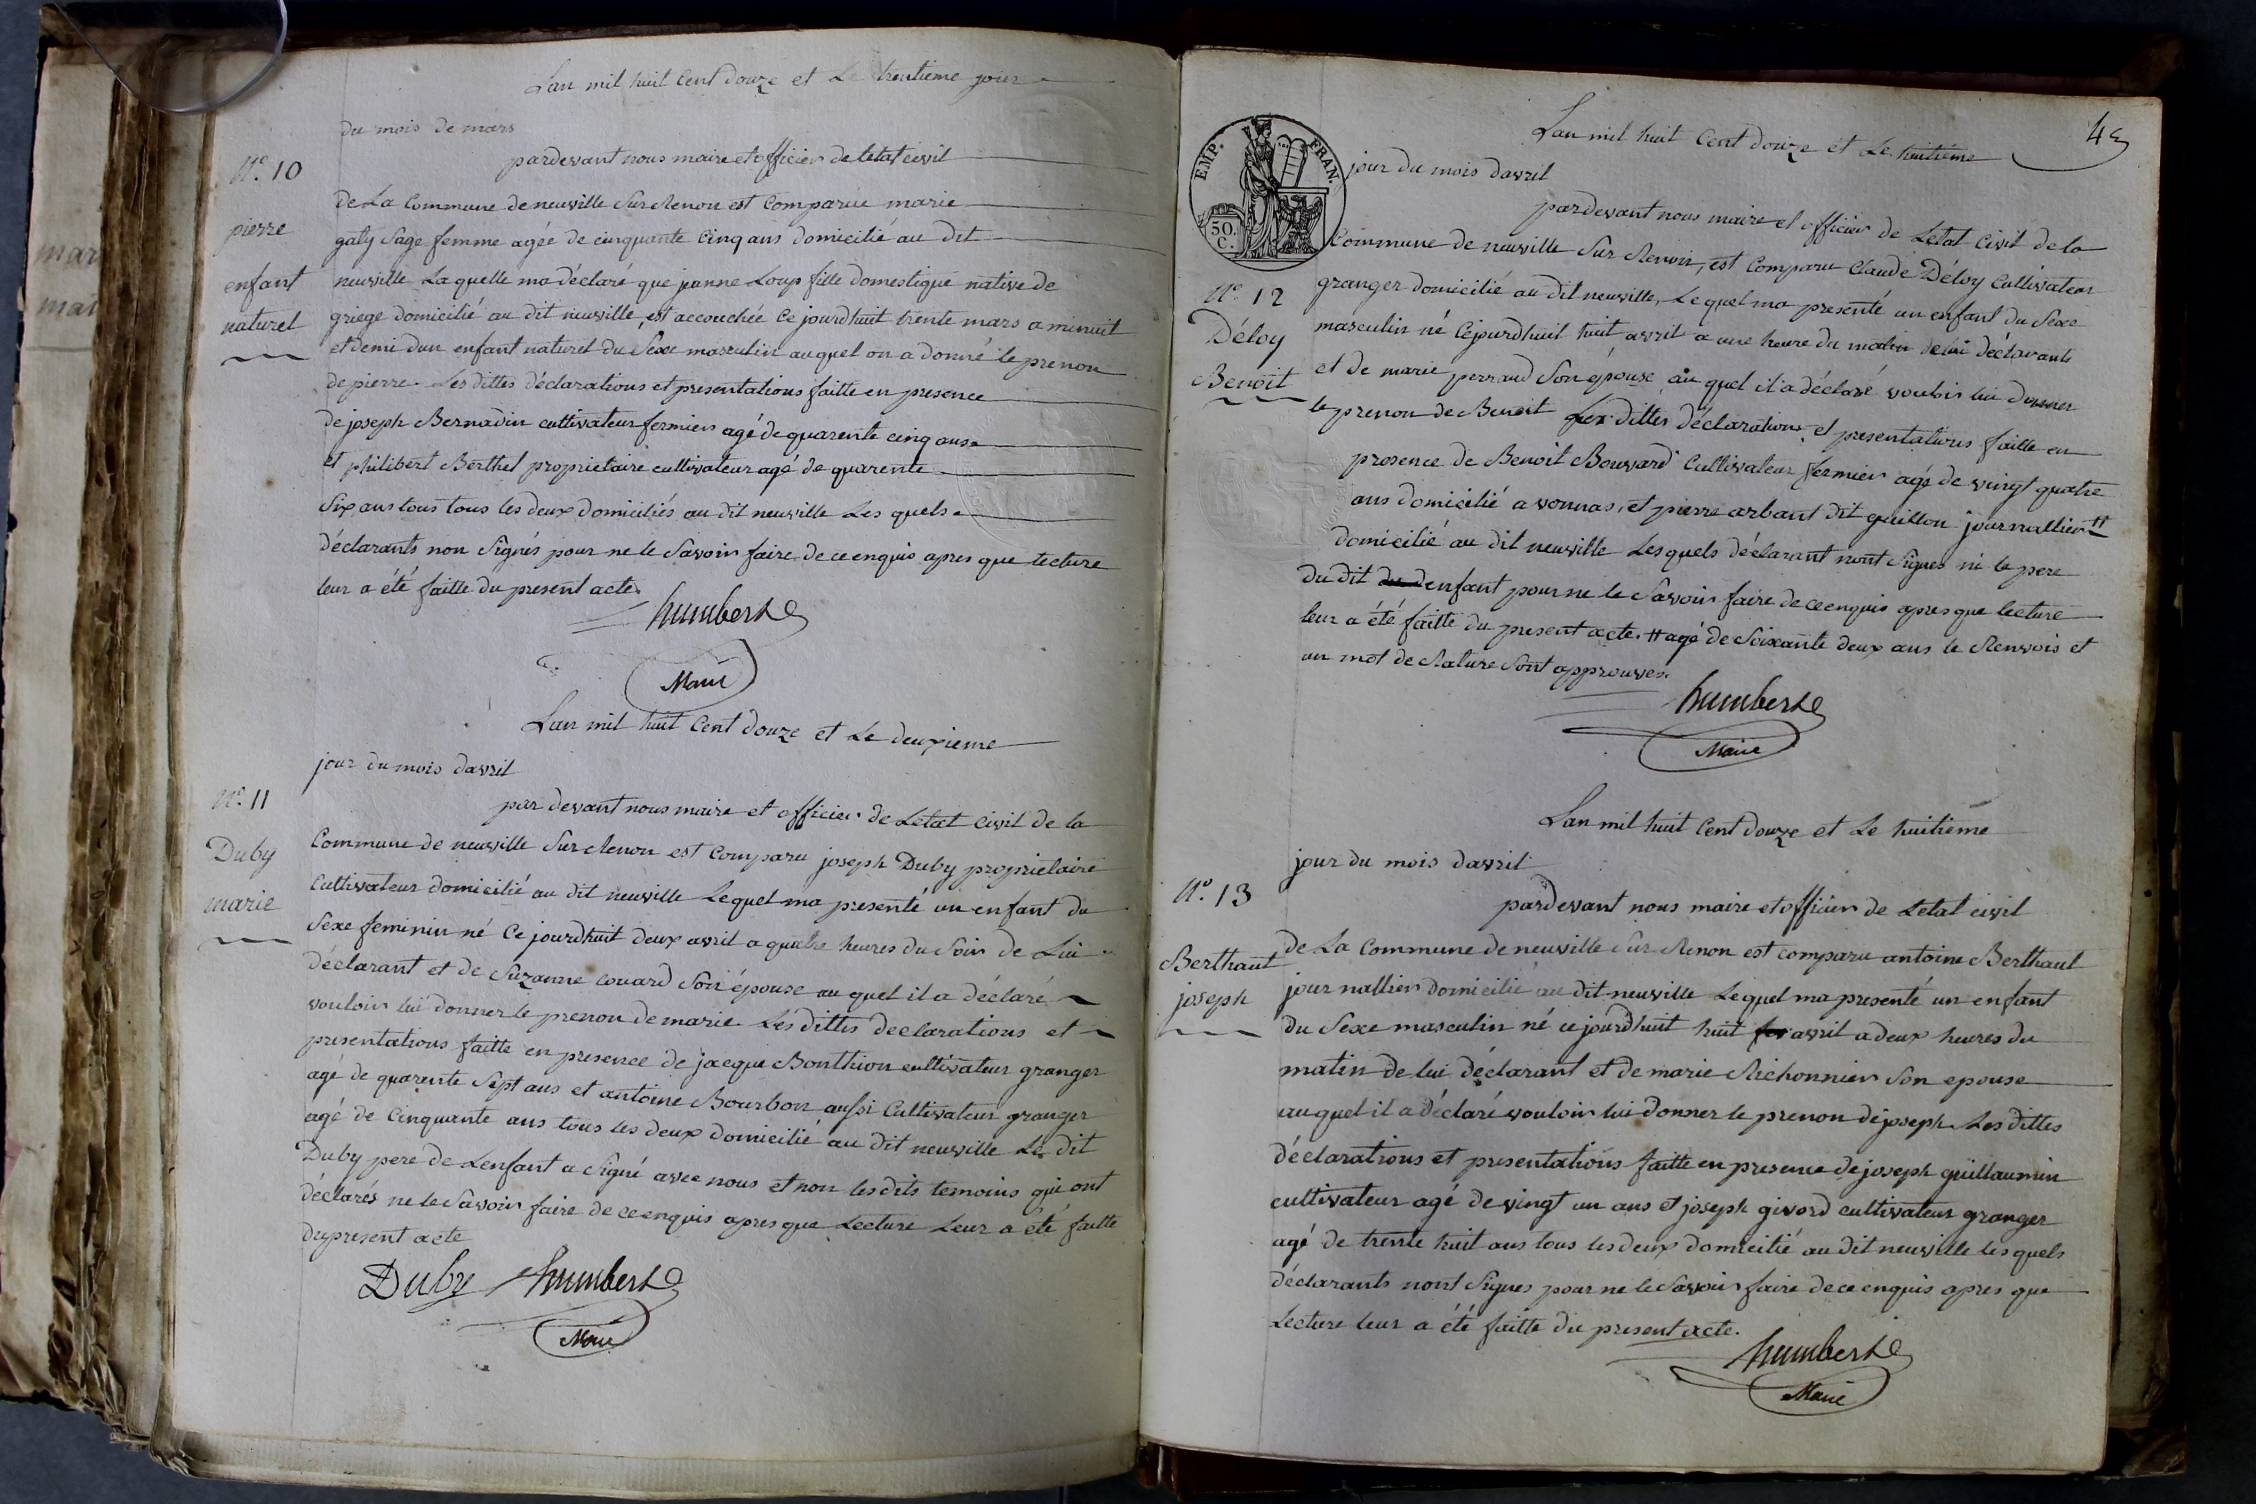 Lan mil huit Cent douze et Le trentieme jour
du mois de mars
pardevant nous maire et officier de letat civil
N°. 10
pierre
enfant
naturel
de La Commune de neuville Sur Renon est Comparue marie
galy Sage femme agée de cinquante Cinq ans domicilié au dit
neuville La quelle ma déclaré que janne Loup fille domestique native de
griege domicilié au dit neuville, est accouchée Ce jourdhuit trente mars a minuit
et demi dun enfant naturel du Sexe masculin auquel on a donné le prenon
de pierre. Les dittes déclarations et presentations faitte en presence
de joseph Bernadin cultivateur fermier agé de quarente cinq ans
et philibert Berthet proprietaire cultivateur agé de quarente
Six ans tous tous les deux domiciliés au dit neuville Les quels
déclarants non Signés pour ne le Savoir faire de ce enquis apres que lecture
leur a été faitte du present acte.
humbert
Maire
Lan mil huit Cent douze et Le deuxieme
jour du mois davril
N°. 11
Duby
marie
par devant nous maire et officier de Letat Civil de la
Commune de neuville Sur Renon est Comparu joseph Duby proprietaire
Cultivateur domicilié au dit neuville Lequel ma presenté un enfant du
Sexe feminin né Ce jourdhuit deux avril a quatre heures du Soir de Lui
déclarant et de Suzanne couard Son épouse au quel il a déclaré
vouloir lui donner le prenon de marie. Les dittes declarations et
presentations faitte en presence de jacque Bonthion cultivateur granger
agé de quarente Sept ans et antoine Bourbon aussi Cultivateur granger
agé de Cinquante ans tous les deux domicilié au dit neuville Le dit
Duby pere de Lenfant a Signé avec nous et non les dits temoins qui ont
déclarés ne le Savoir faire de ce enquis apres que Lecture Leur a été faitte
du present acte
Duby humbert
Maire
4
Lan mil huit Cent douze et Le huitieme
jour du mois davril
EMP. FRAN.
50.
C.
pardevant nous maire et officier de Letat Civil de la
Commune de neuville Sur Renon, est Comparu Claude Déloy Cultivateur
N°. 12
Déloy
Benoit
granger domicilié au dit neuville, Le quel ma presenté un enfant du Sexe
masculin né Cejourdhuit huit avril a une heure du matin de lui déclarante
et de marie perraud Son épouse au quel il a déclaré vouloir lui donner
le prenon de Benoit Les dittes déclarations et presentations faitte en
presence de Benoit Bouvard Cultivateur fermier agé de vingt quatre
ans domicilié a vonnas, et pierre arbant dit guillon journallier #
domicilié au dit neuville Lesquels déclarant nont Signes ni le pere
du dit du denfant pour ne le Savoir faire de ce enquis apres que lecture
leur a été faitte du present acte. # agé de Soixante deux ans le Renvois et
un mot de Rature Sont approuves.
humbert
Maire
Lan mil huit Cent douze et Le huitieme
jour du mois davril
N°. 13
Berthaut
joseph
pardevant nous maire et officier de Letat civil
de La Commune de neuville Sur Renon est comparu antoine Berthaut
journallier domicilié au dit neuville Lequel ma presenté un enfant
du Sexe masculin né ce jourdhuit huit avril a deux heures du
matin de lui déclarant et de marie Richonnier Son epouse
auquel il a déclaré vouloir lui donner le prenon de joseph. Les dittes
déclarations et presentations faitte en presence de joseph guillaumin
cultivateur agé de vingt un ans et joseph givord cultivateur granger
agé de trente huit ans tous les deux domicilié au dit neuville les quels
déclarants nont Signes pour ne le Savoir faire de ce enquis apres que
Lecture leur a été faitte du present acte.
humbert
Maire